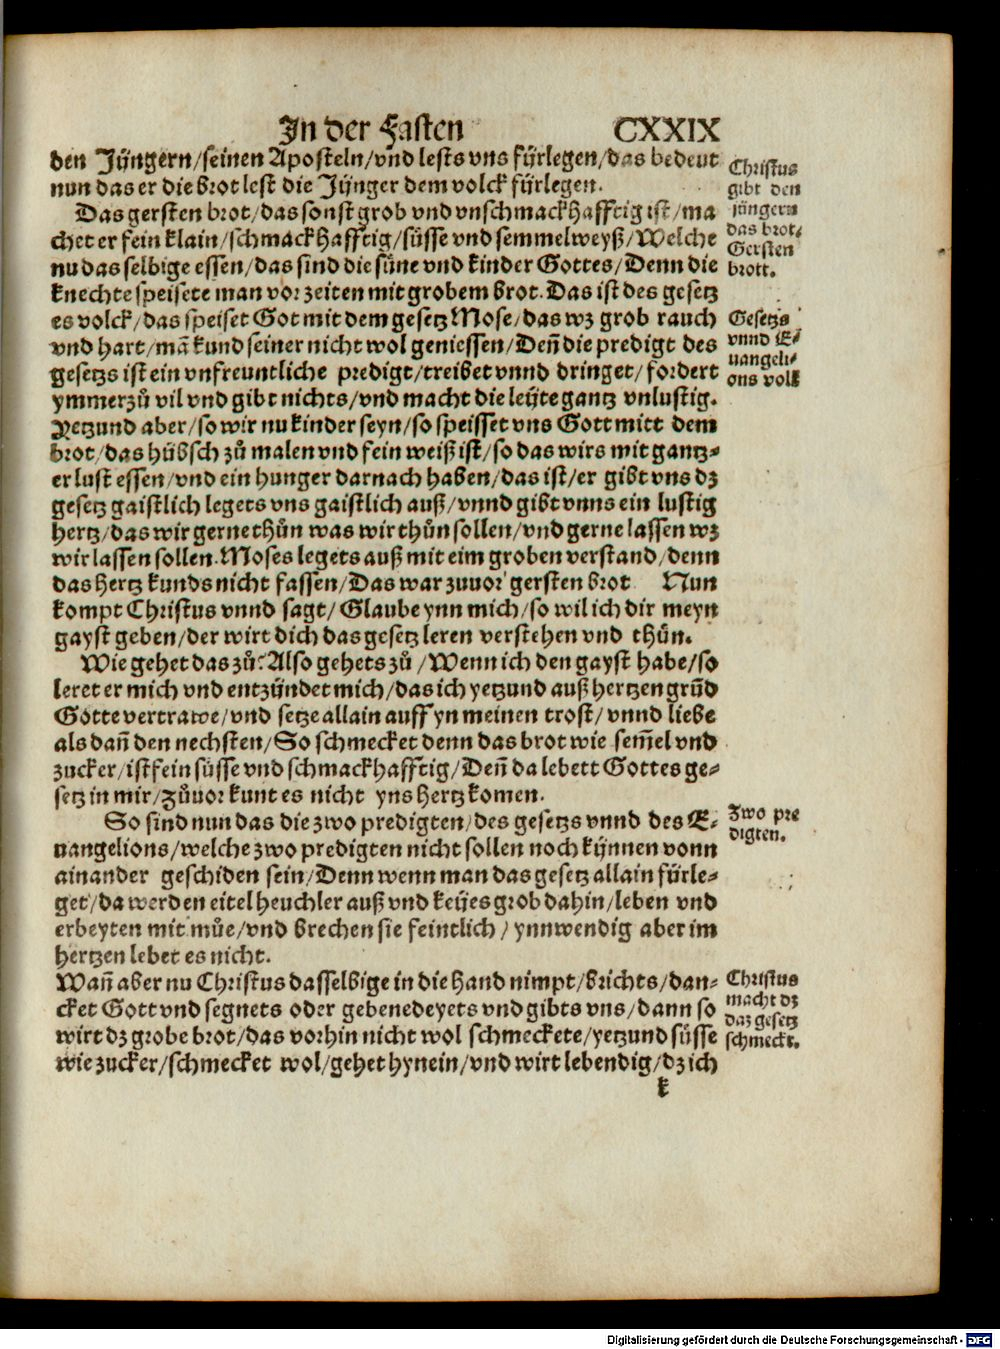 In der Fasten CXXIX
den Jüngern/seinen Aposteln/vnd lests vns fürlegen/das bedeut
nun das er die brot lest die Jünger dem volck fürlegen.
Das gersten brot/das sonst grob vnd vnschmackhafftig ist/ma
chet er fein klain/schmackhafftig/süsse vnd semmelweyß/Welche
nu das selbige essen/das sind die süne vnd kinder Gottes/Denn die
knechte speisete man vor zeiten mit grobem brot. Das ist des gesetz
es volck/das speiset Got mit dem gesetz Mose/das wz grob rauch
vnd hart/mā kund seiner nicht wol geniessen/Den̄ die predigt des
gesetzs ist ein vnfreuntliche predigt/treibet vnnd dringet/fordert
ymmerzů vil vnd gibt nichts/vnd macht die leüte gantz vnlustig.
Yetzund aber/so wir nu kinder seyn/so speisset vns Gott mitt dem
brot/das hübsch zů malen vnd fein weiß ist/so das wirs mit gantz-
er lust essen/vnd ein hunger darnach haben/das ist/er gibt vns dz
gesetz gaistlich legets vns gaistlich auß/vnnd gibt vnns ein lustig
hertz/das wir gerne thůn was wir thůn sollen/vnd gerne lassen wz
wir lassen sollen. Moses legets auß mit eim groben verstand/denn
das hertz kunds nicht fassen/Das war zuuor gersten brot Nun
kompt Christus vnnd sagt/Glaube ynn mich/so wil ich dir meyn
gayst geben/der wirt dich das gesetz leren verstehen vnd thůn.
Wie gehet das zů? Also gehets zů/Wenn ich den gayst habe/so
leret er mich vnd entzündet mich/das ich yetzund auß hertzen grūd
Gotte vertrawe/vnd setze allain auff yn meinen trost/vnnd liebe
als dan̄ den nechsten/So schmecket denn das brot wie sem̄el vnd
zucker/ist fein süsse vnd schmackhafftig/Den̄ da lebett Gottes ge-
setz in mir/zůuor kunt es nicht yns hertz komen.
So sind nun das die zwo predigten/des gesetzs vnnd des E-
uangelions/welche zwo predigten nicht sollen noch künnen vonn
ainander geschiden sein/Denn wenn man das gesetz allain fürle-
get/da werden eitel heuchler auß vnd keyes grob dahin/leben vnd
erbeyten mit můe/vnd brechen sie feintlich/ynnwendig aber im
hertzen lebet es nicht.
Wan̄ aber nu Christus dasselbige in die hand nimpt/brichts/dan-
cket Gott vnd segnets oder gebenedeyets vnd gibts vns/dann so
wirt dz grobe brot/das vorhin nicht wol schmeckete/yetzund süsse
wie zucker/schmecket wol/gehet hynein/vnd wirt lebendig/dz ich
k
Christus
gibt den
jüngern
das brot-
Gersten
brott.
Gesetzs
vnnd E-
uangeli-
ons volk
Zwo pre
digten.
Christus
macht dz
daz gesetz
schmeckt.
Digitalisierung gefördert durch die Deutsche Forschungsgemeinschaft - DFG